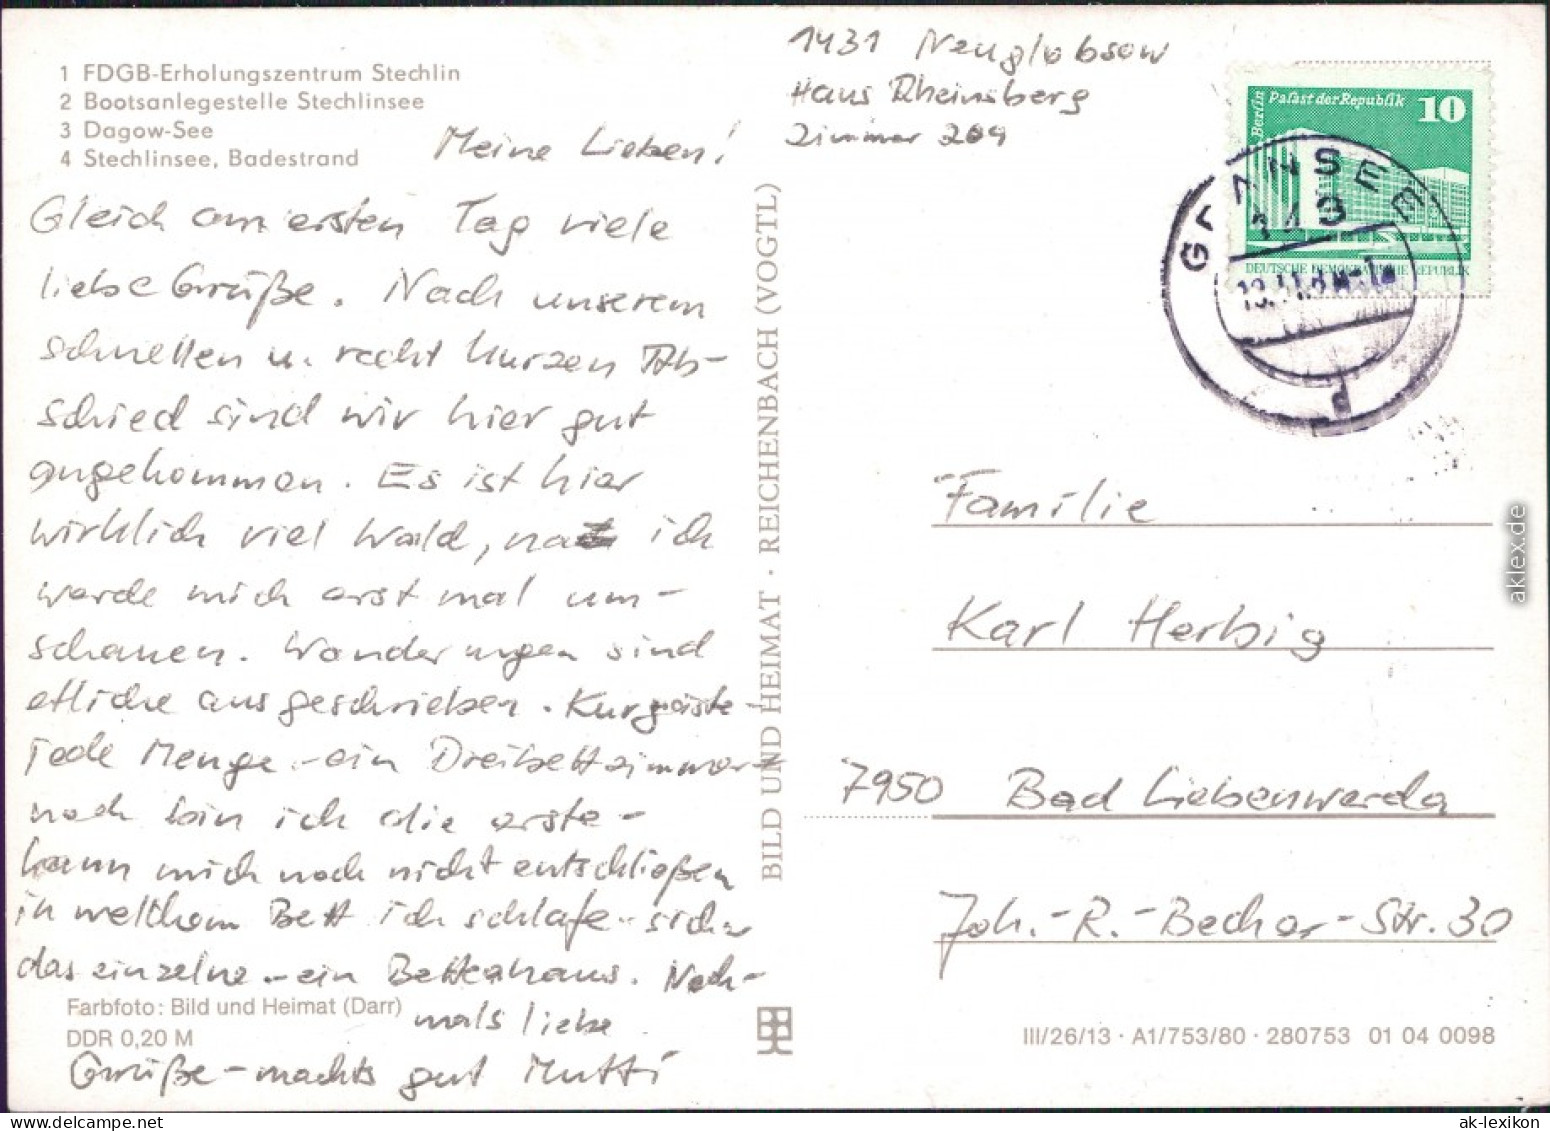 1 FDGB-Erholungszentrum Stechlin
2 Bootsanlegestelle Stechlinsee
3 Dagow-See
4 Stechlinsee, Badestrand
Meine Lieben!
Gleich am ersten Tag viele
liebe Grüße. Nach unserem
schnellen u. recht kurzen Ab-
schied sind wir hier gut
angekommen. Es ist hier
wirklich viel Wald, na ich
werde mich erst mal um-
schauen. Wanderungen sind
etliche ausgeschrieben. Kurgäste -
jede Menge - ein Dreibettzimmer
noch bin ich die erste -
kann mich noch nicht entschließen
in welchem Bett ich schlafe - sicher
das einzelne - ein Bettenhaus. Noch-
mals liebe
Grüße - machts gut Mutti
Farbfoto: Bild und Heimat (Darr)
DDR 0,20 M
BILD UND HEIMAT · REICHENBACH (VOGTL)
1431 Neuglobsow
Haus Rheinsberg
Zimmer 209
Berlin
Palast der Republik 10
DEUTSCHE DEMOKRATISCHE REPUBLIK
GRANSEE
143
Familie
Karl Herbig
7950 Bad Liebenwerda
Joh.-R.-Becher-Str. 30
III/26/13 · A1/753/80 · 280753 01 04 0098
aklex.de
ak-lexikon